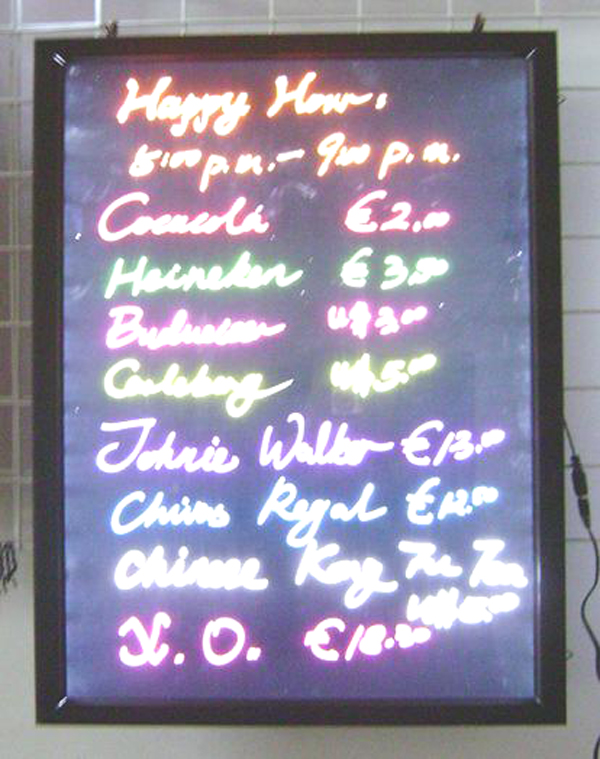 Happy Hour:
5:00 p.m. - 9:00 p.m.
Cocacola €2.00
Heineken €3.50
Budweiser U$3.00
Carlsberg U$5.00
Johnie Walker €13.00
Chivas Regal €12.00
Chinese Kong Fu Tea
X.O.